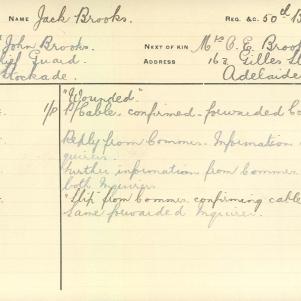 NAME Jack Brooks. REG. &C. 50th B
John Brooks. NEXT OF KIN Mrs O. E. Broo
Guard. ADDRESS 162 Gilles St
Stockade. Adelaide
"Wounded"
1/P P/Cable. confirmed. forwarded Co
Reply from Commos. Information
quirers.
Further information from Commos
both Inquirers
"Slip from Commos. confirming cable
Same forwarded Inquirer.